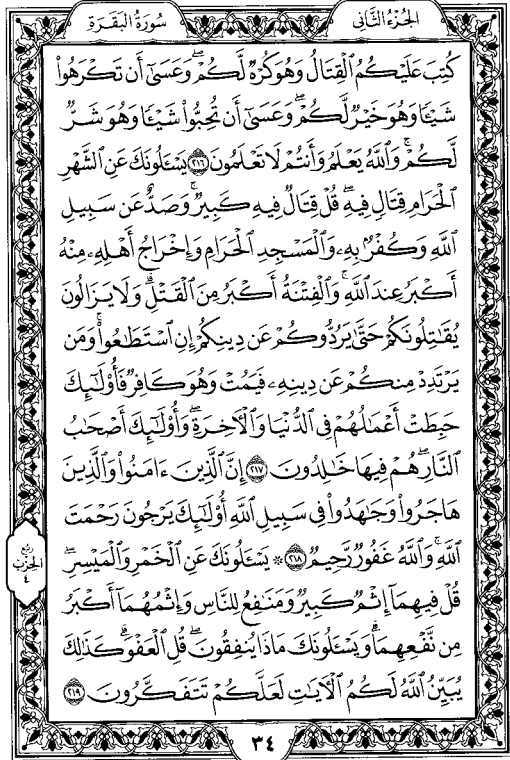 سُورَةُ البَقَرَةِ
الجُزْءُ الثَّانِي
كُتِبَ عَلَيْكُمُ ٱلْقِتَالُ وَهُوَ كُرْهٌ لَّكُمْ ۖ وَعَسَىٰٓ أَن تَكْرَهُوا۟
شَيْـًٔا وَهُوَ خَيْرٌ لَّكُمْ ۖ وَعَسَىٰٓ أَن تُحِبُّوا۟ شَيْـًٔا وَهُوَ شَرٌّ
لَّكُمْ ۗ وَٱللَّهُ يَعْلَمُ وَأَنتُمْ لَا تَعْلَمُونَ ٢١٦ يَسْـَٔلُونَكَ عَنِ ٱلشَّهْرِ
ٱلْحَرَامِ قِتَالٍ فِيهِ ۖ قُلْ قِتَالٌ فِيهِ كَبِيرٌ ۖ وَصَدٌّ عَن سَبِيلِ
ٱللَّهِ وَكُفْرٌۢ بِهِۦ وَٱلْمَسْجِدِ ٱلْحَرَامِ وَإِخْرَاجُ أَهْلِهِۦ مِنْهُ
أَكْبَرُ عِندَ ٱللَّهِ ۚ وَٱلْفِتْنَةُ أَكْبَرُ مِنَ ٱلْقَتْلِ ۗ وَلَا يَزَالُونَ
يُقَـٰتِلُونَكُمْ حَتَّىٰ يَرُدُّوكُمْ عَن دِينِكُمْ إِنِ ٱسْتَطَـٰعُوا۟ ۚ وَمَن
يَرْتَدِدْ مِنكُمْ عَن دِينِهِۦ فَيَمُتْ وَهُوَ كَافِرٌ فَأُو۟لَـٰٓئِكَ
حَبِطَتْ أَعْمَـٰلُهُمْ فِى ٱلدُّنْيَا وَٱلْـَٔاخِرَةِ ۖ وَأُو۟لَـٰٓئِكَ أَصْحَـٰبُ
ٱلنَّارِ ۖ هُمْ فِيهَا خَـٰلِدُونَ ٢١٧ إِنَّ ٱلَّذِينَ ءَامَنُوا۟ وَٱلَّذِينَ
هَاجَرُوا۟ وَجَـٰهَدُوا۟ فِى سَبِيلِ ٱللَّهِ أُو۟لَـٰٓئِكَ يَرْجُونَ رَحْمَتَ
ٱللَّهِ ۚ وَٱللَّهُ غَفُورٌ رَّحِيمٌ ٢١٨ ۞ يَسْـَٔلُونَكَ عَنِ ٱلْخَمْرِ وَٱلْمَيْسِرِ ۖ
رُبع
الحِزب
٤
قُلْ فِيهِمَآ إِثْمٌ كَبِيرٌ وَمَنَـٰفِعُ لِلنَّاسِ وَإِثْمُهُمَآ أَكْبَرُ
مِن نَّفْعِهِمَا ۗ وَيَسْـَٔلُونَكَ مَاذَا يُنفِقُونَ ۖ قُلِ ٱلْعَفْوَ ۗ كَذَٰلِكَ
يُبَيِّنُ ٱللَّهُ لَكُمُ ٱلْـَٔايَـٰتِ لَعَلَّكُمْ تَتَفَكَّرُونَ ٢١٩
٣٤